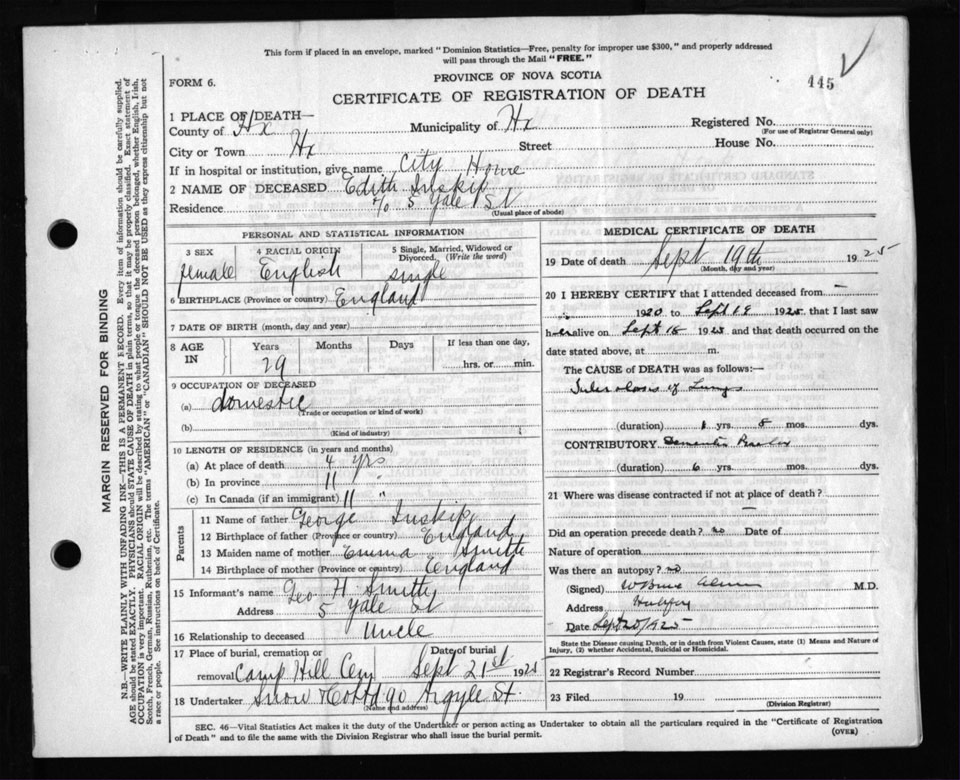 This form if placed in an envelope, marked "Dominion Statistics—Free, penalty for improper use $300," and properly addressed
will pass through the Mail "FREE."
FORM 6.
PROVINCE OF NOVA SCOTIA
445
CERTIFICATE OF REGISTRATION OF DEATH
1 PLACE OF DEATH—
County of Hx Municipality of Hx Registered No.
(For use of Registrar General only)
City or Town Hx Street House No.
If in hospital or institution, give name City Home
2 NAME OF DECEASED Edith Inskip
Residence c/o 5 Yale St
(Usual place of abode)
PERSONAL AND STATISTICAL INFORMATION
3 SEX 4 RACIAL ORIGIN 5 Single, Married, Widowed or
Divorced. (Write the word)
female English single
6 BIRTHPLACE (Province or country) England
7 DATE OF BIRTH (month, day and year)
8 AGE IN Years Months Days If less than one day,
29 hrs. or min.
9 OCCUPATION OF DECEASED
(a) domestic
(Trade or occupation or kind of work)
(b)
(Kind of industry)
10 LENGTH OF RESIDENCE (in years and months)
(a) At place of death 4 yrs
(b) In province 11 "
(c) In Canada (if an immigrant) 11 "
Parents
11 Name of father George Inskip
12 Birthplace of father (Province or country) England
13 Maiden name of mother Emma Smith
14 Birthplace of mother (Province or country) England
15 Informant's name Geo H Smith
Address 5 Yale St
16 Relationship to deceased Uncle
17 Place of burial, cremation or Date of burial
removal Camp Hill Cem Sept 21st 1925
18 Undertaker Snow & Co Ltd 90 Argyle St.
(Name and address)
MEDICAL CERTIFICATE OF DEATH
19 Date of death Sept 19th 1925
(Month, day and year)
20 I HEREBY CERTIFY that I attended deceased from —
1920 to Sept 19 1925, that I last saw
her alive on Sept 18 1925 and that death occurred on the
date stated above, at m.
The CAUSE of DEATH was as follows:—
Tuberculosis of Lungs
(duration) 1 yrs. 8 mos. dys.
CONTRIBUTORY Dementia Praecox
(duration) 6 yrs. mos. dys.
21 Where was disease contracted if not at place of death?
—
Did an operation precede death? no Date of
Nature of operation
Was there an autopsy? no
(Signed) M.D.
Address Halifax
Date Sept 20/1925
State the Disease causing Death, or in death from Violent Causes, state (1) Means and Nature of
Injury, (2) whether Accidental, Suicidal or Homicidal.
22 Registrar's Record Number
23 Filed 19
(Division Registrar)
SEC. 46—Vital Statistics Act makes it the duty of the Undertaker or person acting as Undertaker to obtain all the particulars required in the "Certificate of Registration
of Death" and to file the same with the Division Registrar who shall issue the burial permit.
(OVER)
MARGIN RESERVED FOR BINDING
N.B.—WRITE PLAINLY WITH UNFADING INK—THIS IS A PERMANENT RECORD. Every item of information should be carefully supplied.
AGE should be stated EXACTLY. PHYSICIANS should STATE CAUSE OF DEATH in plain terms, so that it may be properly classified. Exact statement of
OCCUPATION is very important. RACIAL ORIGIN will be described by stating to what people or tongue the deceased person belonged, whether English, Irish,
Scotch, French, German, Russian, Ruthenian, etc. The terms "AMERICAN" or "CANADIAN" SHOULD NOT BE USED as they express citizenship but not
a race or people. See instructions on back of Certificate.